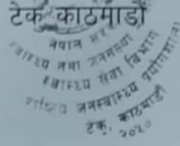 टेकु काठमाडौं
नेपाल सरकार
स्वास्थ्य तथा जनसंख्या
स्वास्थ्य सेवा विभाग
राष्ट्रिय जनस्वास्थ्य प्रयोगशाला
टेकु, काठमाडौं
२०२०